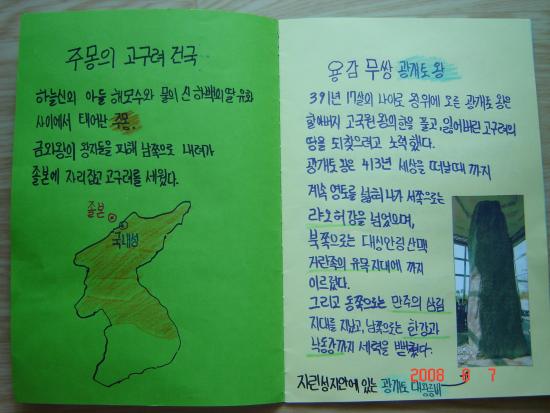 주몽의 고구려 건국
하늘신의 아들 해모수와 물의 신 하백의 딸 유화
사이에서 태어난 주몽.
금와왕의 왕자들을 피해 남쪽으로 내려가
졸본에 자리잡고 고구려를 세웠다.
졸본
국내성
용감 무쌍 광개토 왕
391년 17살의 나이로 왕위에 오른 광개토 왕은
할아버지 고국원 왕의 한을 풀고, 잃어버린 고구려의
땅을 되찾으려고 노력했다.
광개토 왕은 413년 세상을 떠날때 까지
계속 영토를 넓혀 나가 서쪽으로는
랴오허 강을 넘었으며,
북쪽으로는 대싱안링 산맥
거란족의 유목 지대에 까지
이르렀다.
그리고 동쪽으로는 만주의 삼림
지대를 지났고, 남쪽으로는 한강과
낙동강까지 세력을 뻗쳤다.
지린성 지안에 있는 광개토 대왕릉비
2008 8 7